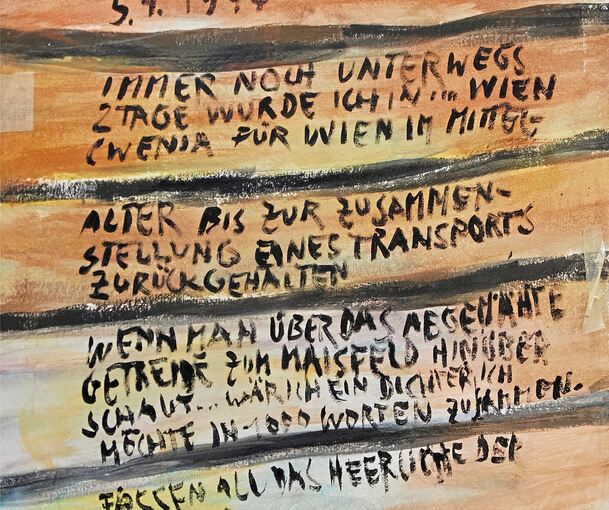 IMMER NOCH UNTERWEGS
2TAGE WURDE ICH IN... WIEN
FÜR WIEN IM MITTEL
ALTER BIS ZUR ZUSAMMEN-
STELLUNG EINES TRANSPORTS
ZURÜCKGEHALTEN
WENN MAN ÜBER DAS ABGEMÄHTE
GETREIDE ZUM MAISFELD HINÜBER
SCHAUT... WÄR ICH EIN DICHTER ICH
MÖCHTE IN 1000 WORTEN ZUSAMMEN-
FASSEN ALL DAS HEERLICHE DER